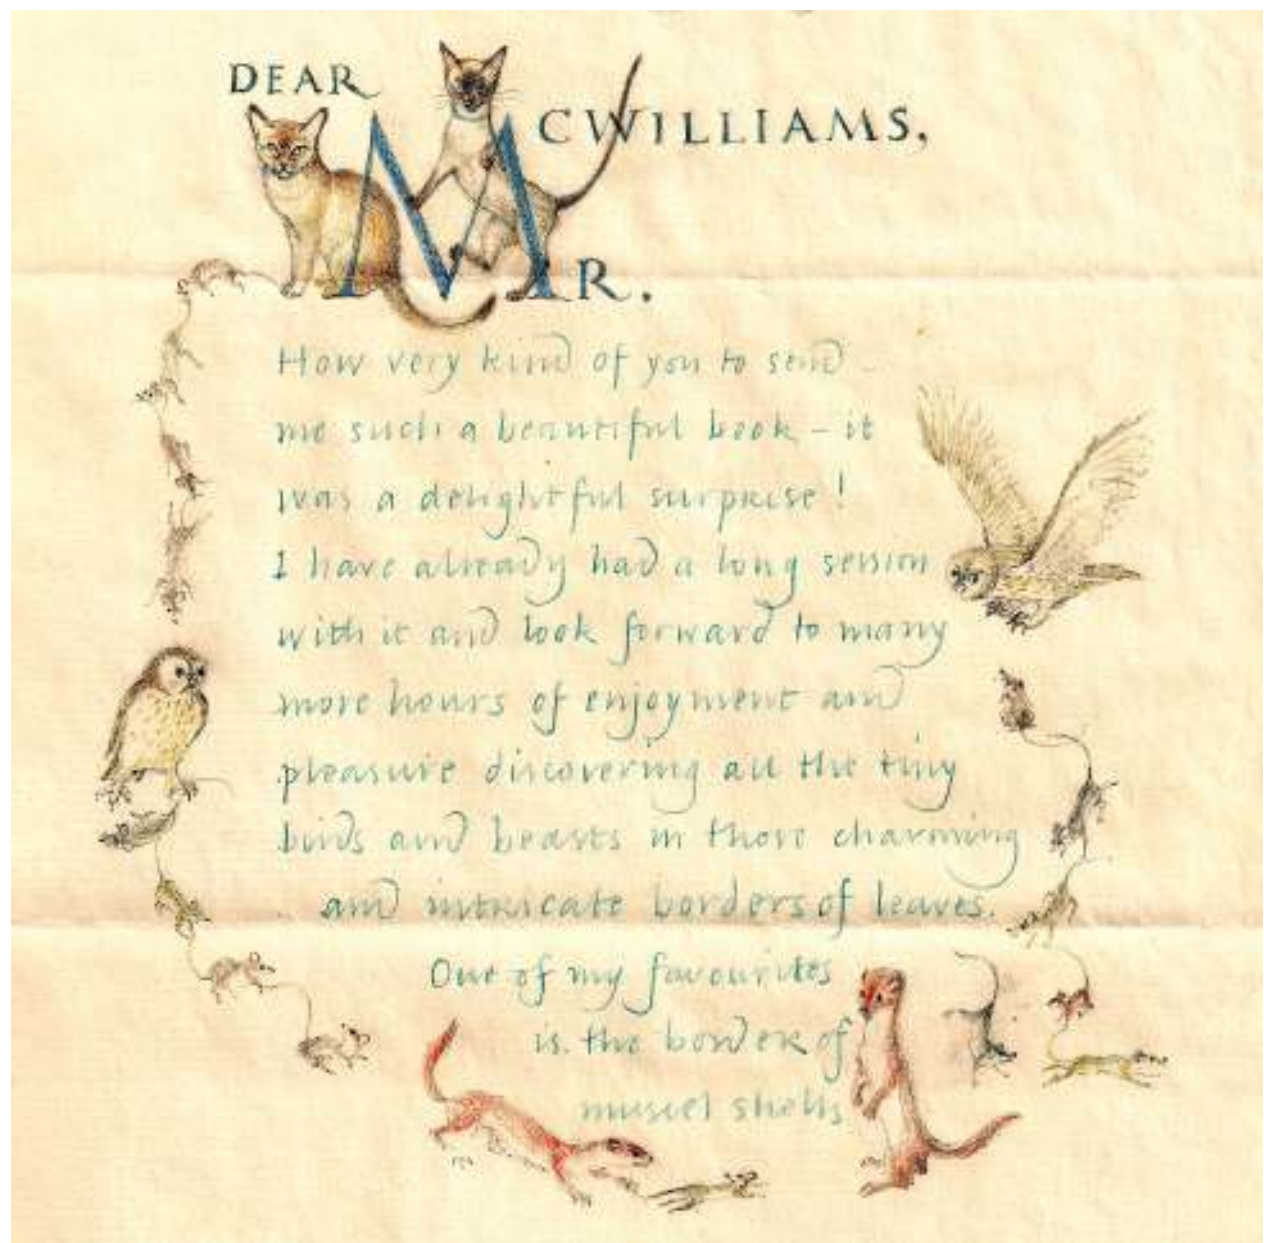 DEAR
MR. MCWILLIAMS,
How very kind of you to send
me such a beautiful book – it
was a delightful surprise!
I have already had a long session
with it and look forward to many
more hours of enjoyment and
pleasure discovering all the tiny
birds and beasts in those charming
and intricate borders of leaves.
One of my favourites
is the border of
mussel shells